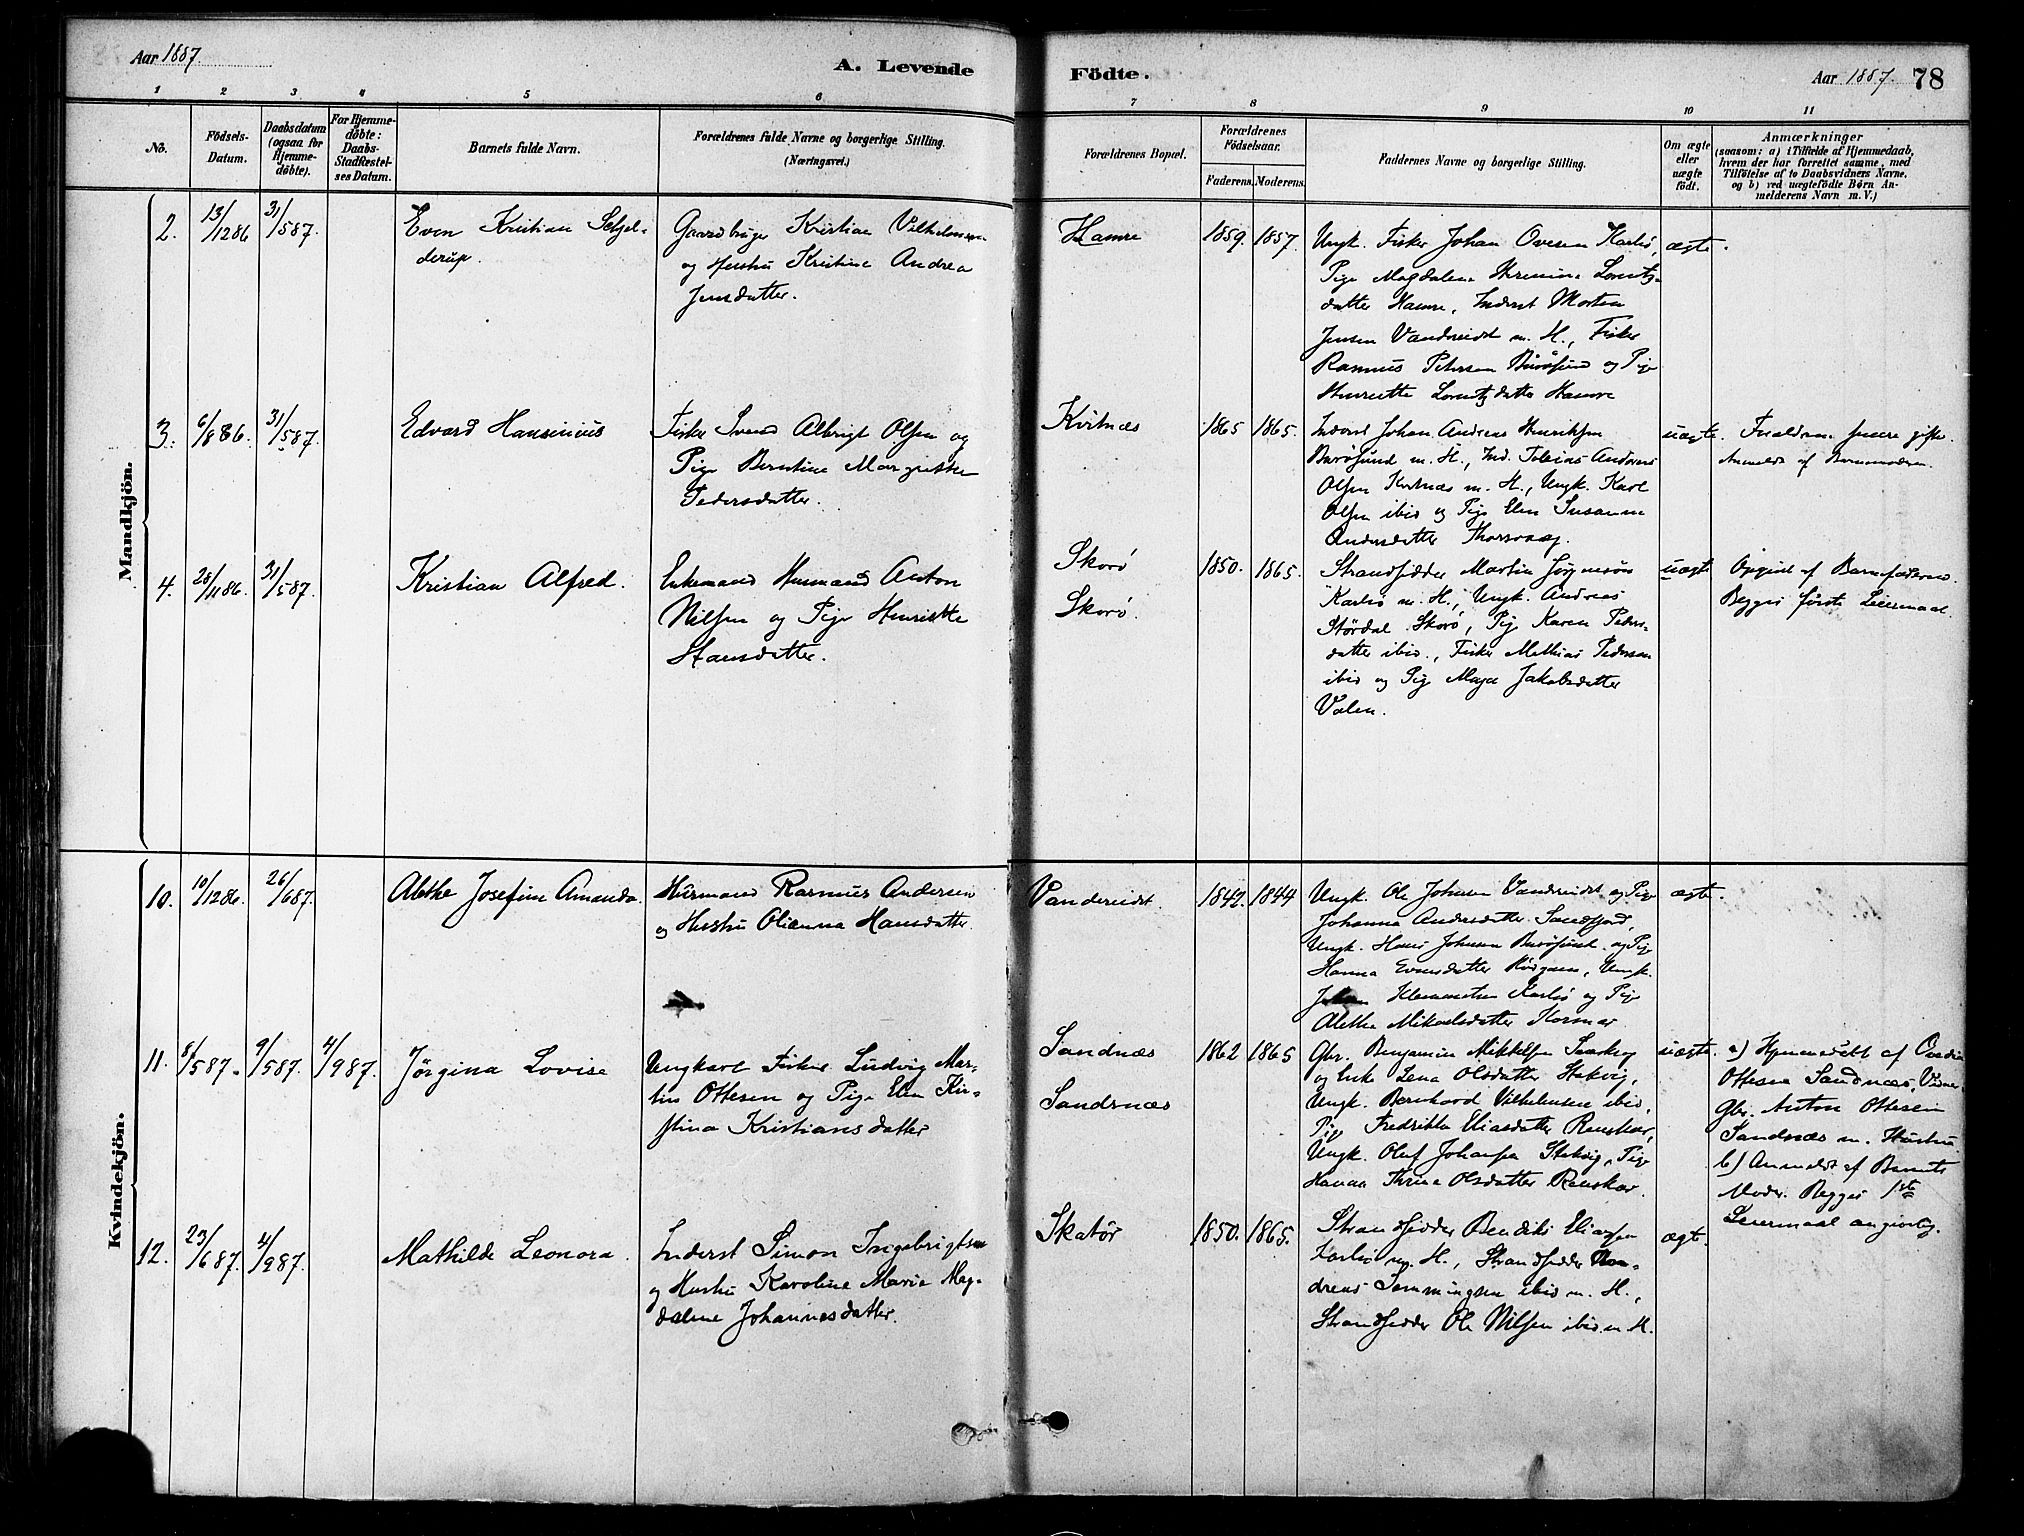 Aar 1887.
A. Levende
Födte.
Aar 1887. 78
1 2 3 4 5 6 7 8 9 10 11
No.
Födsels-
Datum.
Daabsdatum
(ogsaa for
Hjemme-
döbte).
For Hjemme-
döbte:
Daabs-
Stadfæstel-
ses Datum.
Barnets fulde Navn.
Forældrenes fulde Navne og borgerlige Stilling.
(Næringsvei.)
Forældrenes Bopæl.
Forældrenes
Födselsaar.
Faderens. Moderens.
Faddernes Navne og borgerlige Stilling.
Om ægte
eller
uægte
födt.
Anmærkninger
(saasom: a) i Tilfælde af Hjemmedaab,
hvem der har forrettet samme, med
Tilföielse af to Daabsvidners Navne.
og b) ved uægtefödte Börn An-
melderens Navn m. V.)
Mandkjön.
2. 13/12 86 31/5 87.
Even Kristian Seljel-
derup.
Gaardbruger Kristian Vilhelmsen
og Hustru Kristine Andrea
Jensdatter.
Hamre
1859. 1857.
Ungk. Fisker Johan Ovesen Karlsö,
Pige Magdalena Lorentz-
datter Hamre, Inderst Morten
Jensen Vandreidet m. H., Fisker
Rasmus Petersen Burösund og Pige
Henriette Lorentzdatter Hamre
ægte.
3. 6/8 86. 31/5 87.
Edvard Hansinius
Fisker Svend Albrigt Olsen og
Pige Berntine Margrethe
Pedersdatter.
Kvitnæs
1865 1865.
Inderst Johan Andreas Henriksen
Burösund m. H., Ind. Tobias Andreas
Olsen Kvitnæs m. H., Ungk. Karl
Olsen ibid og Pige Elen Susanna
Andersdatter Thorsvaag.
uægte.
Forældrene senere gifte.
Anmeldt af Barnemoderen.
4. 28/11 86. 31/5 87.
Kristian Alfred.
Enkemand Hermand Anton
Nilsen og Pige Henrikke
Hansdatter.
Skorö
Skorö.
1850. 1865.
Strandsidder Martin Jörgensen
Karlsö m. H., Ungk. Andreas
Stördal Skorö, Pige Karen Peders-
datter ibid., Fisker Mathias Pedersen
ibid og Pige Maja Jakobsdatter
Valen.
uægte
Opgivet af Barnefaderen.
Begges förste Leiermaal
Kvindekjön.
10. 10/12 86. 26/6 87.
Alethe Josefine Amanda.
Husmand Rasmus Andersen
og Hustru Olianna Hansdatter.
Vandereidet.
1842. 1844
Ungk. Ole Johnsen Vandreidet og Pige
Johanna Andersdatter Sandfjord,
Ungk. Hans Johnsen Burösund og Pige
Hanna Evensdatter, Ungk.
Klemmetsen Karlsö og Pige
Alethe Mikaelsdatter Kornnes.
ægte.
11. 8/5 87. 9/5 87. 4/9 87.
Jørgina Lovise
Ungkarl Fisker Ludvig Mar-
tin Ottesen og Pige Elen Kri-
stina Kristiansdatter
Sandnæs
Sandsnæs
1862 1865
Gbr. Benjamin Mikkelsen
og Enke Lena Olsdatter Hekvig,
Ungk. Bernhard Vilhelmsen ibid,
Pige Fredrikke Eliasdatter Renskar,
Ungk. Oluf Johansen, Pige
Hanna Thrine Olsdatter Renskar.
uægte.
a) Hjemmedöbt af
Ottesen Sandnæs, Vidner
Gbr. Anton Ottesen
Sandnæs m. Hustru
b) Anmeldt af Barnets
Moder. Begges 1ste
Leiermaal angivelig.
12. 23/6 87. 4/9 87.
Mathilde Leonora.
Inderst Simon Ingebrigtsen
og Hustru Karoline Marie Mag-
dalene Johannesdatter.
Skatör
1850. 1865.
Strandsidder Bendiks Eliassen
Karlsö m. H., Strandsidder An-
dreas Simmingsen ibid m. H.,
Strandsidder Ole Nilsen ibid m. H.
ægte.